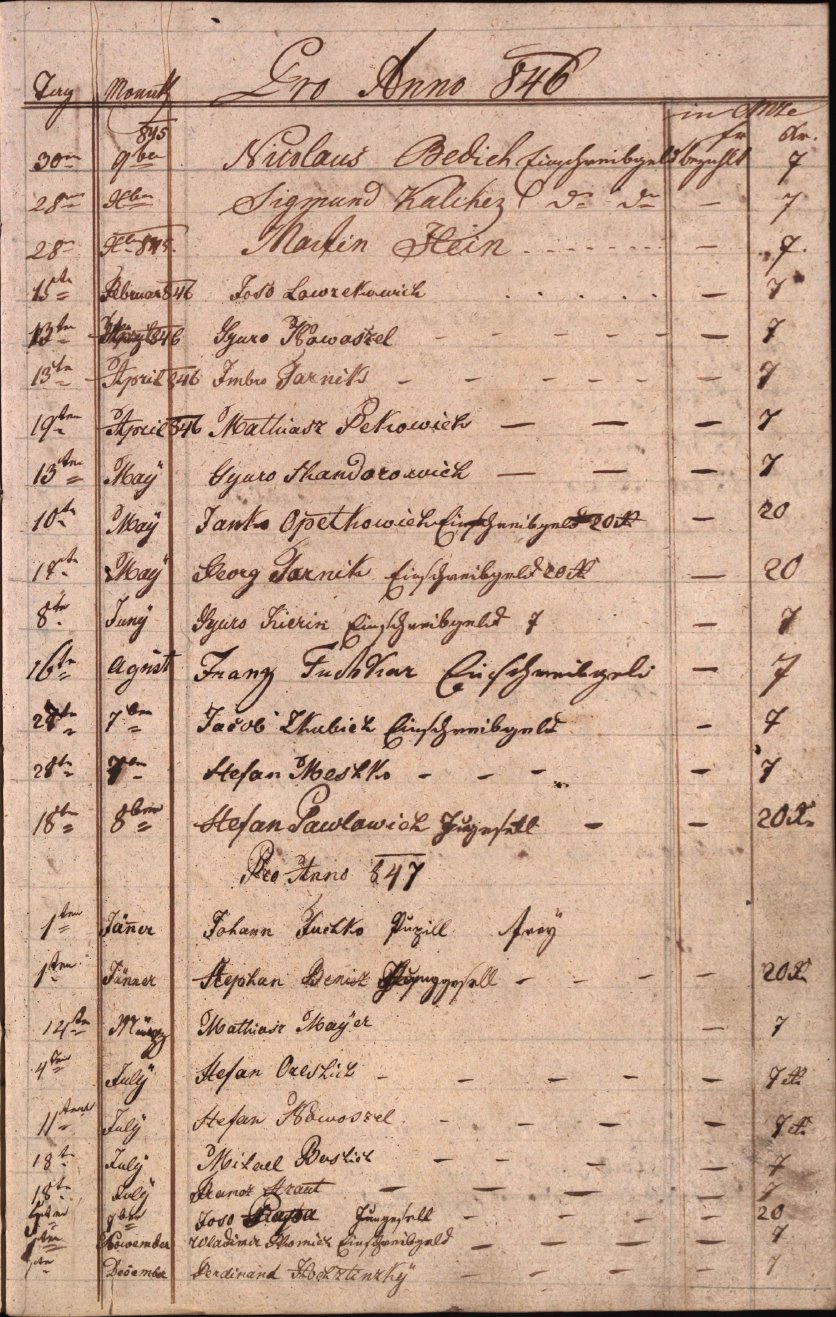 Pro Anno 846
Tag Monath in Cmze
845 fr Xr.
30ten 9ber Nicolaus Bedich Einschreibgeld bezahlt 7
28ten Xber Sigmund Kalchez do do — 7
28 Xb 845. Martin Hein . . . . . . . — 7.
15te Februar 846 Joso Lawrekowich . . . . . — 7
13ten 846 Gyuro Nowaszel - - - - - — 7
13te April 846 Imbro Jarnik - - - - - - 7
19ten April 846 Mathiasz Pekowich — — — 7
13ten May Gyuro Skandorowich — — — 7
10te May Janko Opetkowich Einschreibgeld 20 Xr — 20
17te May Georg Jarnik Einschreibgeld 20 Xr — 20
8te Juny Gyuro Kierin Einschreibgeld 7 — 7
16te Agust Franz Fuchkar Einschreibgeld — 7
27te 7ber Jacob Zkubich Einschreibgeld — 7
28te 7ber Stefan Meshko - - - — 7
18te 8ber Stefan Pawlawich Jungesell — — 20 Xr
Pro Anno 847
1ten Jänner Johann Fuchko Pupill frey
1ten Jänner Stephan Benisz Junggesell - - - - 20 Xr
14ten März Mathiasz Mayer — 7
4ten July Stefan Oreshich - - - - - 7 Xr
11ten July Stefan Nowoszel - - - - - 7 Xr
18te July Mikael Boshich - - - - 7
18te July Franz Kraut — — — — 7
9ber Joso Jungesell - - - - 20
November Wladimir Einschreibgeld — — — — 7
December Ferdinand - - - - - - 7